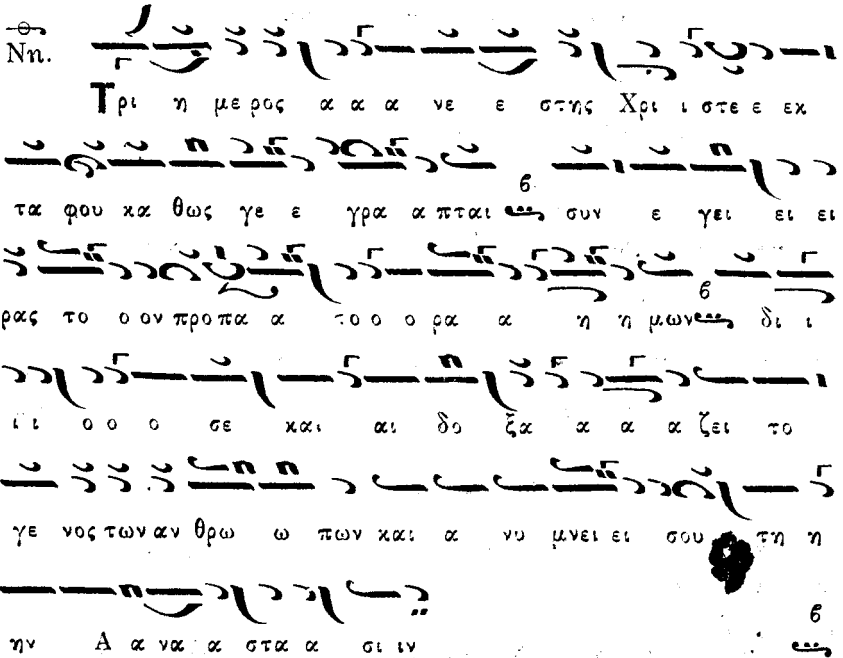 Νη.
Τρι η με ρος α α α νε ε στης Χρι ι στε ε εκ
τα φου κα θως γε ε γρα α πται συν ε γει ει ει
ρας το ο ον προ πα α το ο ο ρα α η η μων δι ι
ι ι ο ο ο σε και αι δο ξα α α α ζει το
γε νος των αν θρω ω πων και α νυ μνει ει σου τη η
ην Α α να α στα α σι ιν